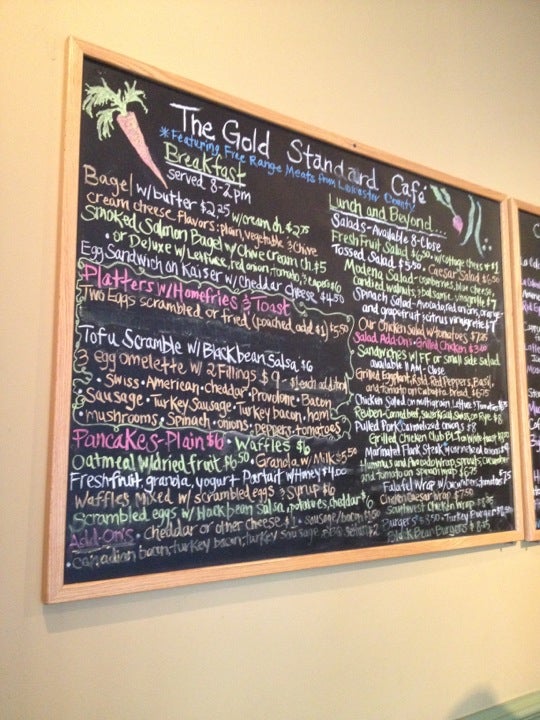 The Gold Standard Café
*Featuring Free Range Meats from Lancaster County!
Breakfast
served 8-2pm
Bagel w/butter $2.25 w/cream ch. $2.75
cream cheese flavors: plain, vegetable & Chive
Smoked Salmon Bagel w/Chive Cream Ch. $5
• or Deluxe w/Lettuce, red onion, tomato, & capers $6
Egg Sandwich on Kaiser w/cheddar cheese $4.50
Platters w/Homefries & Toast
Two Eggs scrambled or fried (poached add $1) $5.50
Tofu Scramble w/Blackbean Salsa $6
3 egg omelette w/2 Fillings $9 • $1 each additional
• Swiss • American • Cheddar • Provolone • Bacon
• Sausage • Turkey Sausage • Turkey bacon, ham
• mushrooms • Spinach • onions • peppers • tomatoes
Pancakes-Plain $6 • Waffles $6
Oatmeal w/dried fruit $6.50 • Granola w/Milk $5.50
Fresh fruit, granola, yogurt Parfait w/Honey $4.00
Waffles Mixed w/scrambled eggs & syrup $6
Scrambled eggs w/black bean Salsa, potatoes, cheddar $6
Add-On's • cheddar or other cheese $1 • sausage/bacon
• canadian bacon, turkey bacon, turkey sausage
Lunch and Beyond....
Salads - Available 8-Close
Fresh Fruit Salad $6.50 w/cottage cheese + $1
Tossed Salad $5.50 • Caesar Salad $6.50
Modena Salad - cranberries, blue cheese
candied walnuts, balsamic vinaigrette $7
Spinach Salad - Avocado, red onions, orange
and grapefruit, citrus vinaigrette $7
Our Chicken Salad w/Tomatoes
Salad Add-On: Grilled Chicken
Sandwiches w/FF or small side salad
available 11 AM - Close
Grilled Eggplant, Rstd. Red Peppers, Basil,
and Tomato on Ciabatta bread
Chicken Salad on multigrain Lettuce & Tomato
Reuben - Corned beef, Sauerkraut, Swiss, on Rye $8
Pulled Pork, caramelized onions $8
Grilled Chicken Club
Marinated Flank Steak w/caramelized onions
Hummus and Avocado Wrap, sprouts, cucumber
and tomato
Falafel Wrap w/cucumbers, tomatoes $7.50
Chicken Caesar Wrap $7.50
Southwest Chicken Wrap
Burgers $8.50 • Turkey Burger
Black Bean Burgers